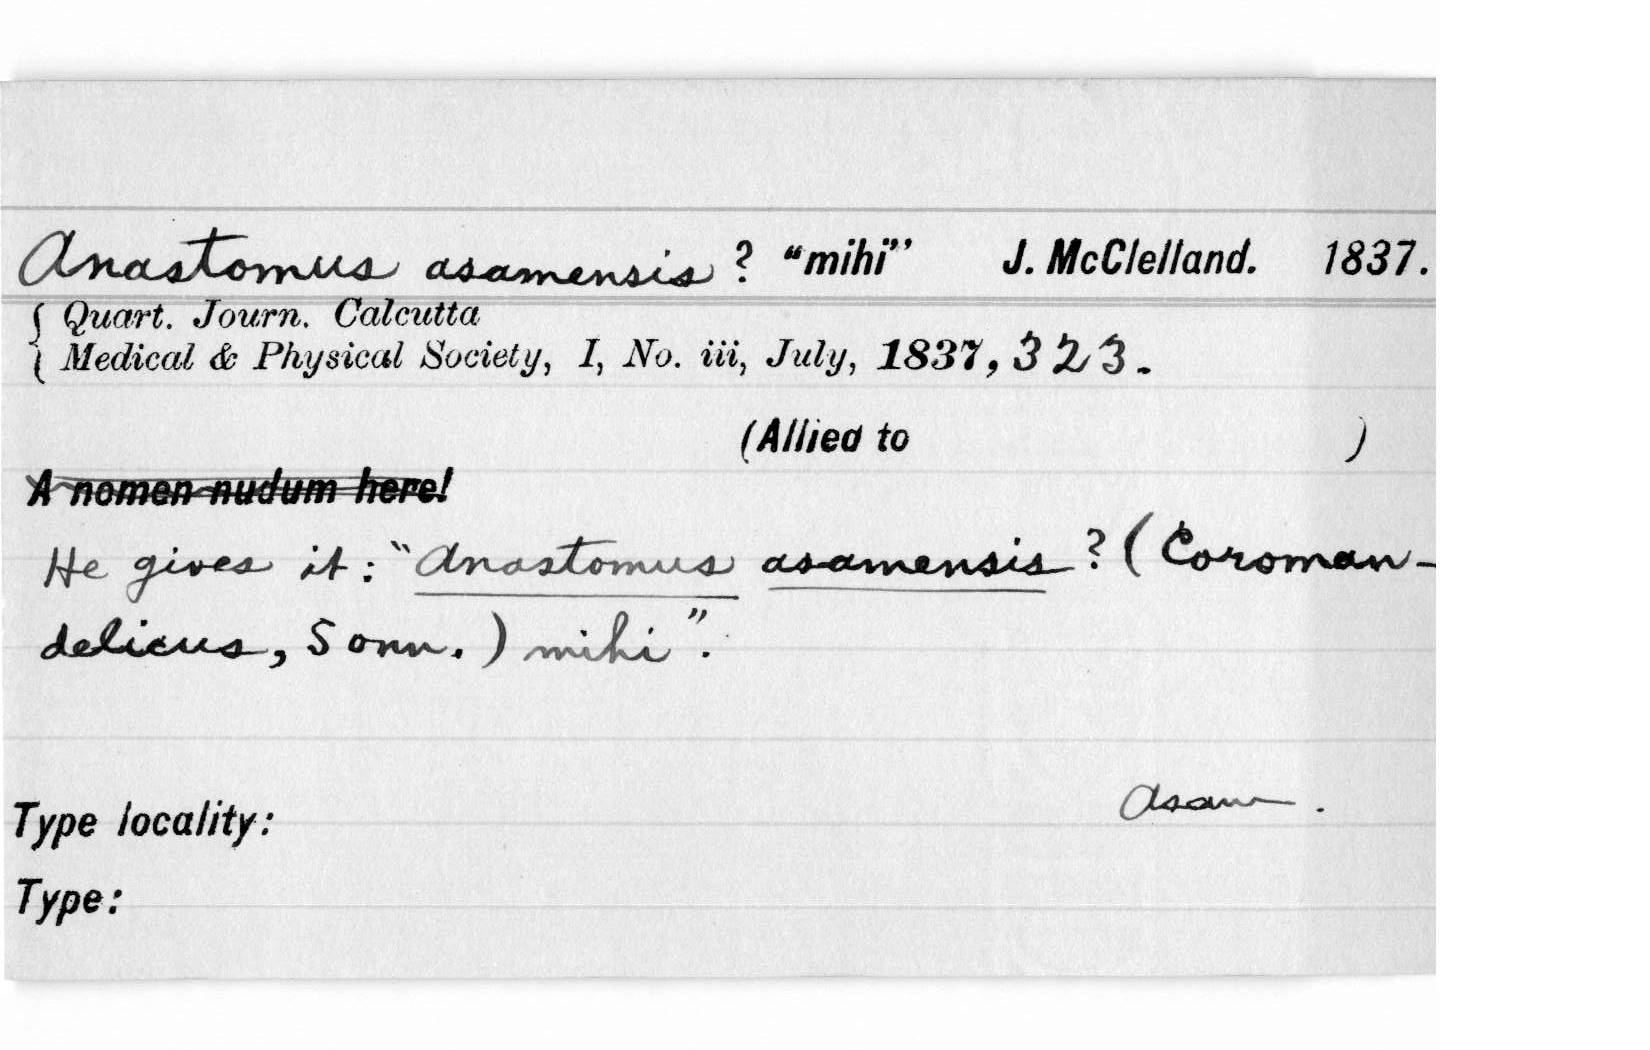 Anastomus asamensis ? "mihi" J. McClelland. 1837.
Quart. Journ. Calcutta
Medical & Physical Society, I, No. iii, July, 1837, 323.
(Allied to )
A nomen nudum here!
He gives it: "Anastomus asamensis ? (Coroman-
delicus, Sonn.) mihi".
Asam.
Type locality:
Type: